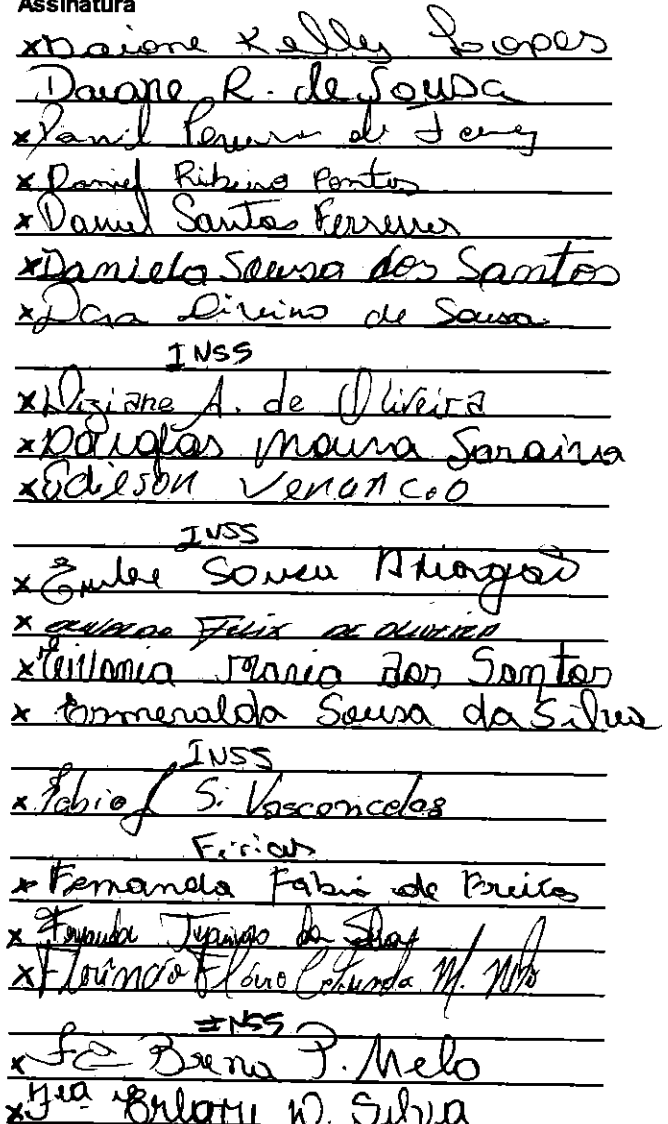 Assinatura
x Daiane Kelly Lopes
Daiane R. de Sousa
x Daniel Pereira de
x Daniel Ribeiro Pontes
x Daniel Santos Ferreira
x Daniela Sousa dos Santos
x Dara Divino de Sousa
INSS
x Diziane A. de Oliveira
x Douglas Moura Saraiva
x Edilson Venancio
INSS
x Sousa Aragão
x Felix de Oliveira
x Maria dos Santos
x Esmeralda Sousa da Silva
INSS
x Fabio S. Vasconcelos
Ferias
x Fernanda Fabio de Freitas
x da Silva
x Florêncio Flávio M.
INSS
x Fca Brena P. Melo
x Fca W. Silva